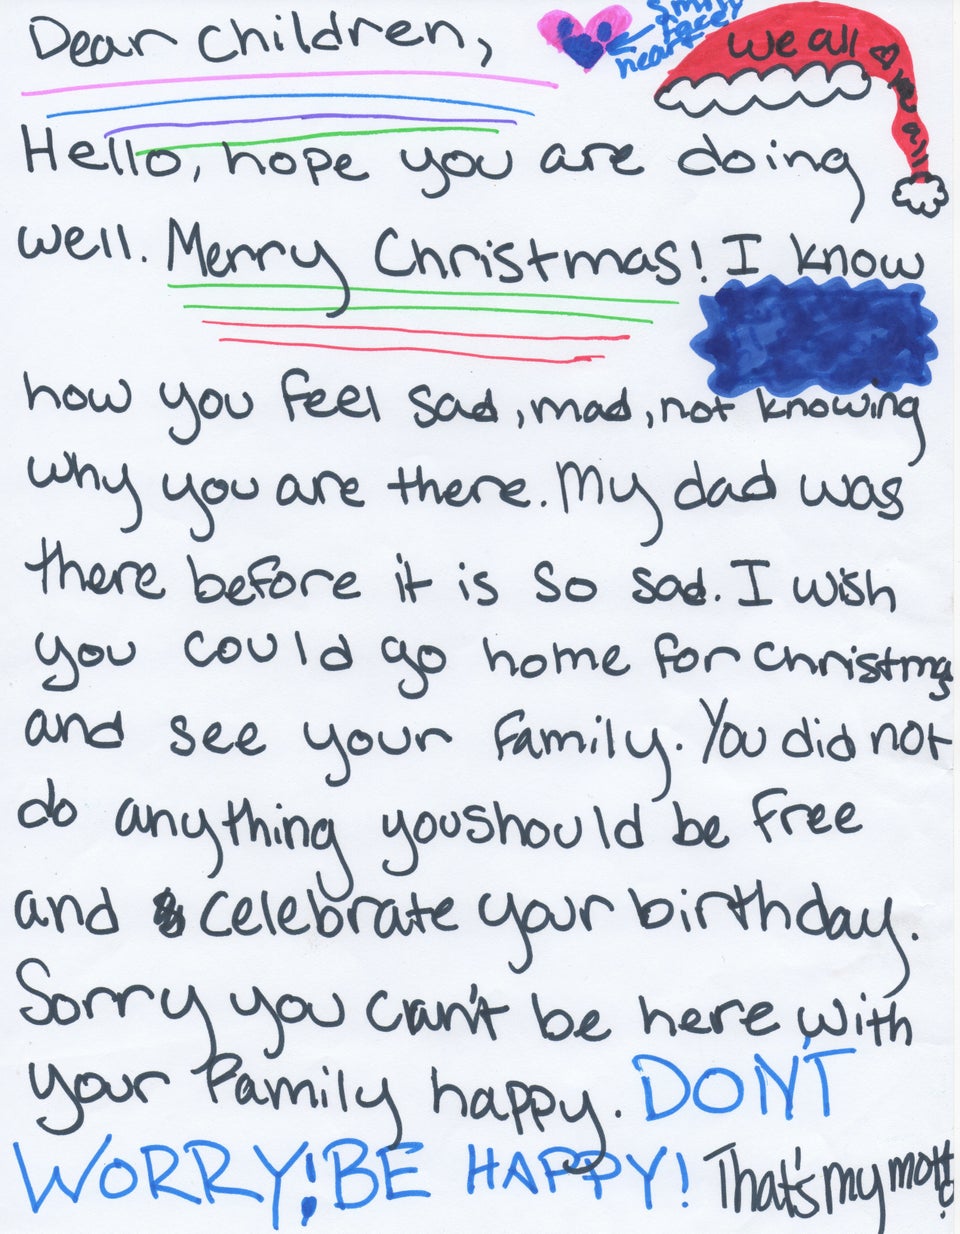 Dear Children,
smiley
face
heart
we all ♡ me all
Hello, hope you are doing
well. Merry Christmas! I know
how you feel sad, mad, not knowing
why you are there. My dad was
there before it is so sad. I wish
you could go home for Christmas
and see your family. You did not
do anything youshould be free
and celebrate your birthday.
Sorry you can't be here with
your family happy. DON'T
WORRY! BE HAPPY! That's my motto!